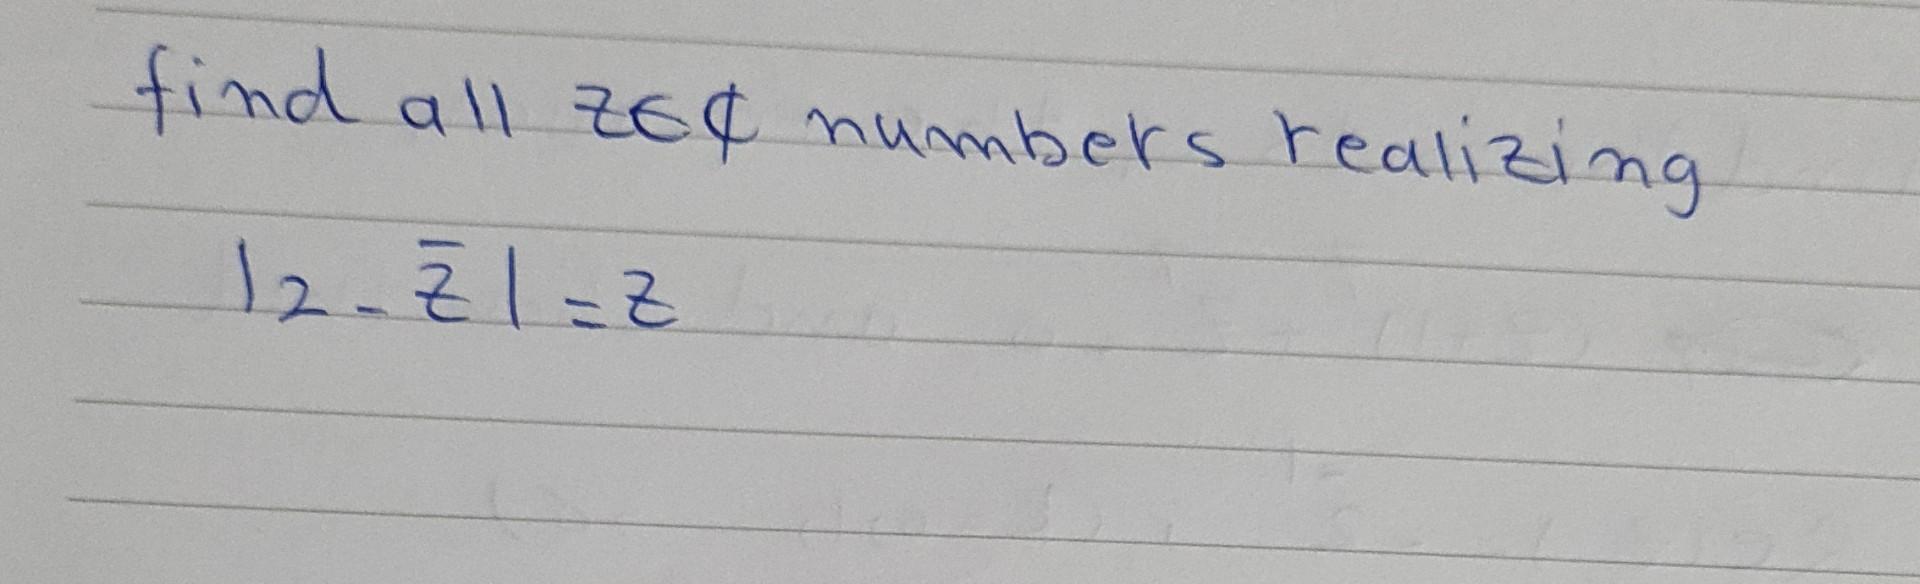 find all z∈ℂ numbers realizing
|2-z̄|=z